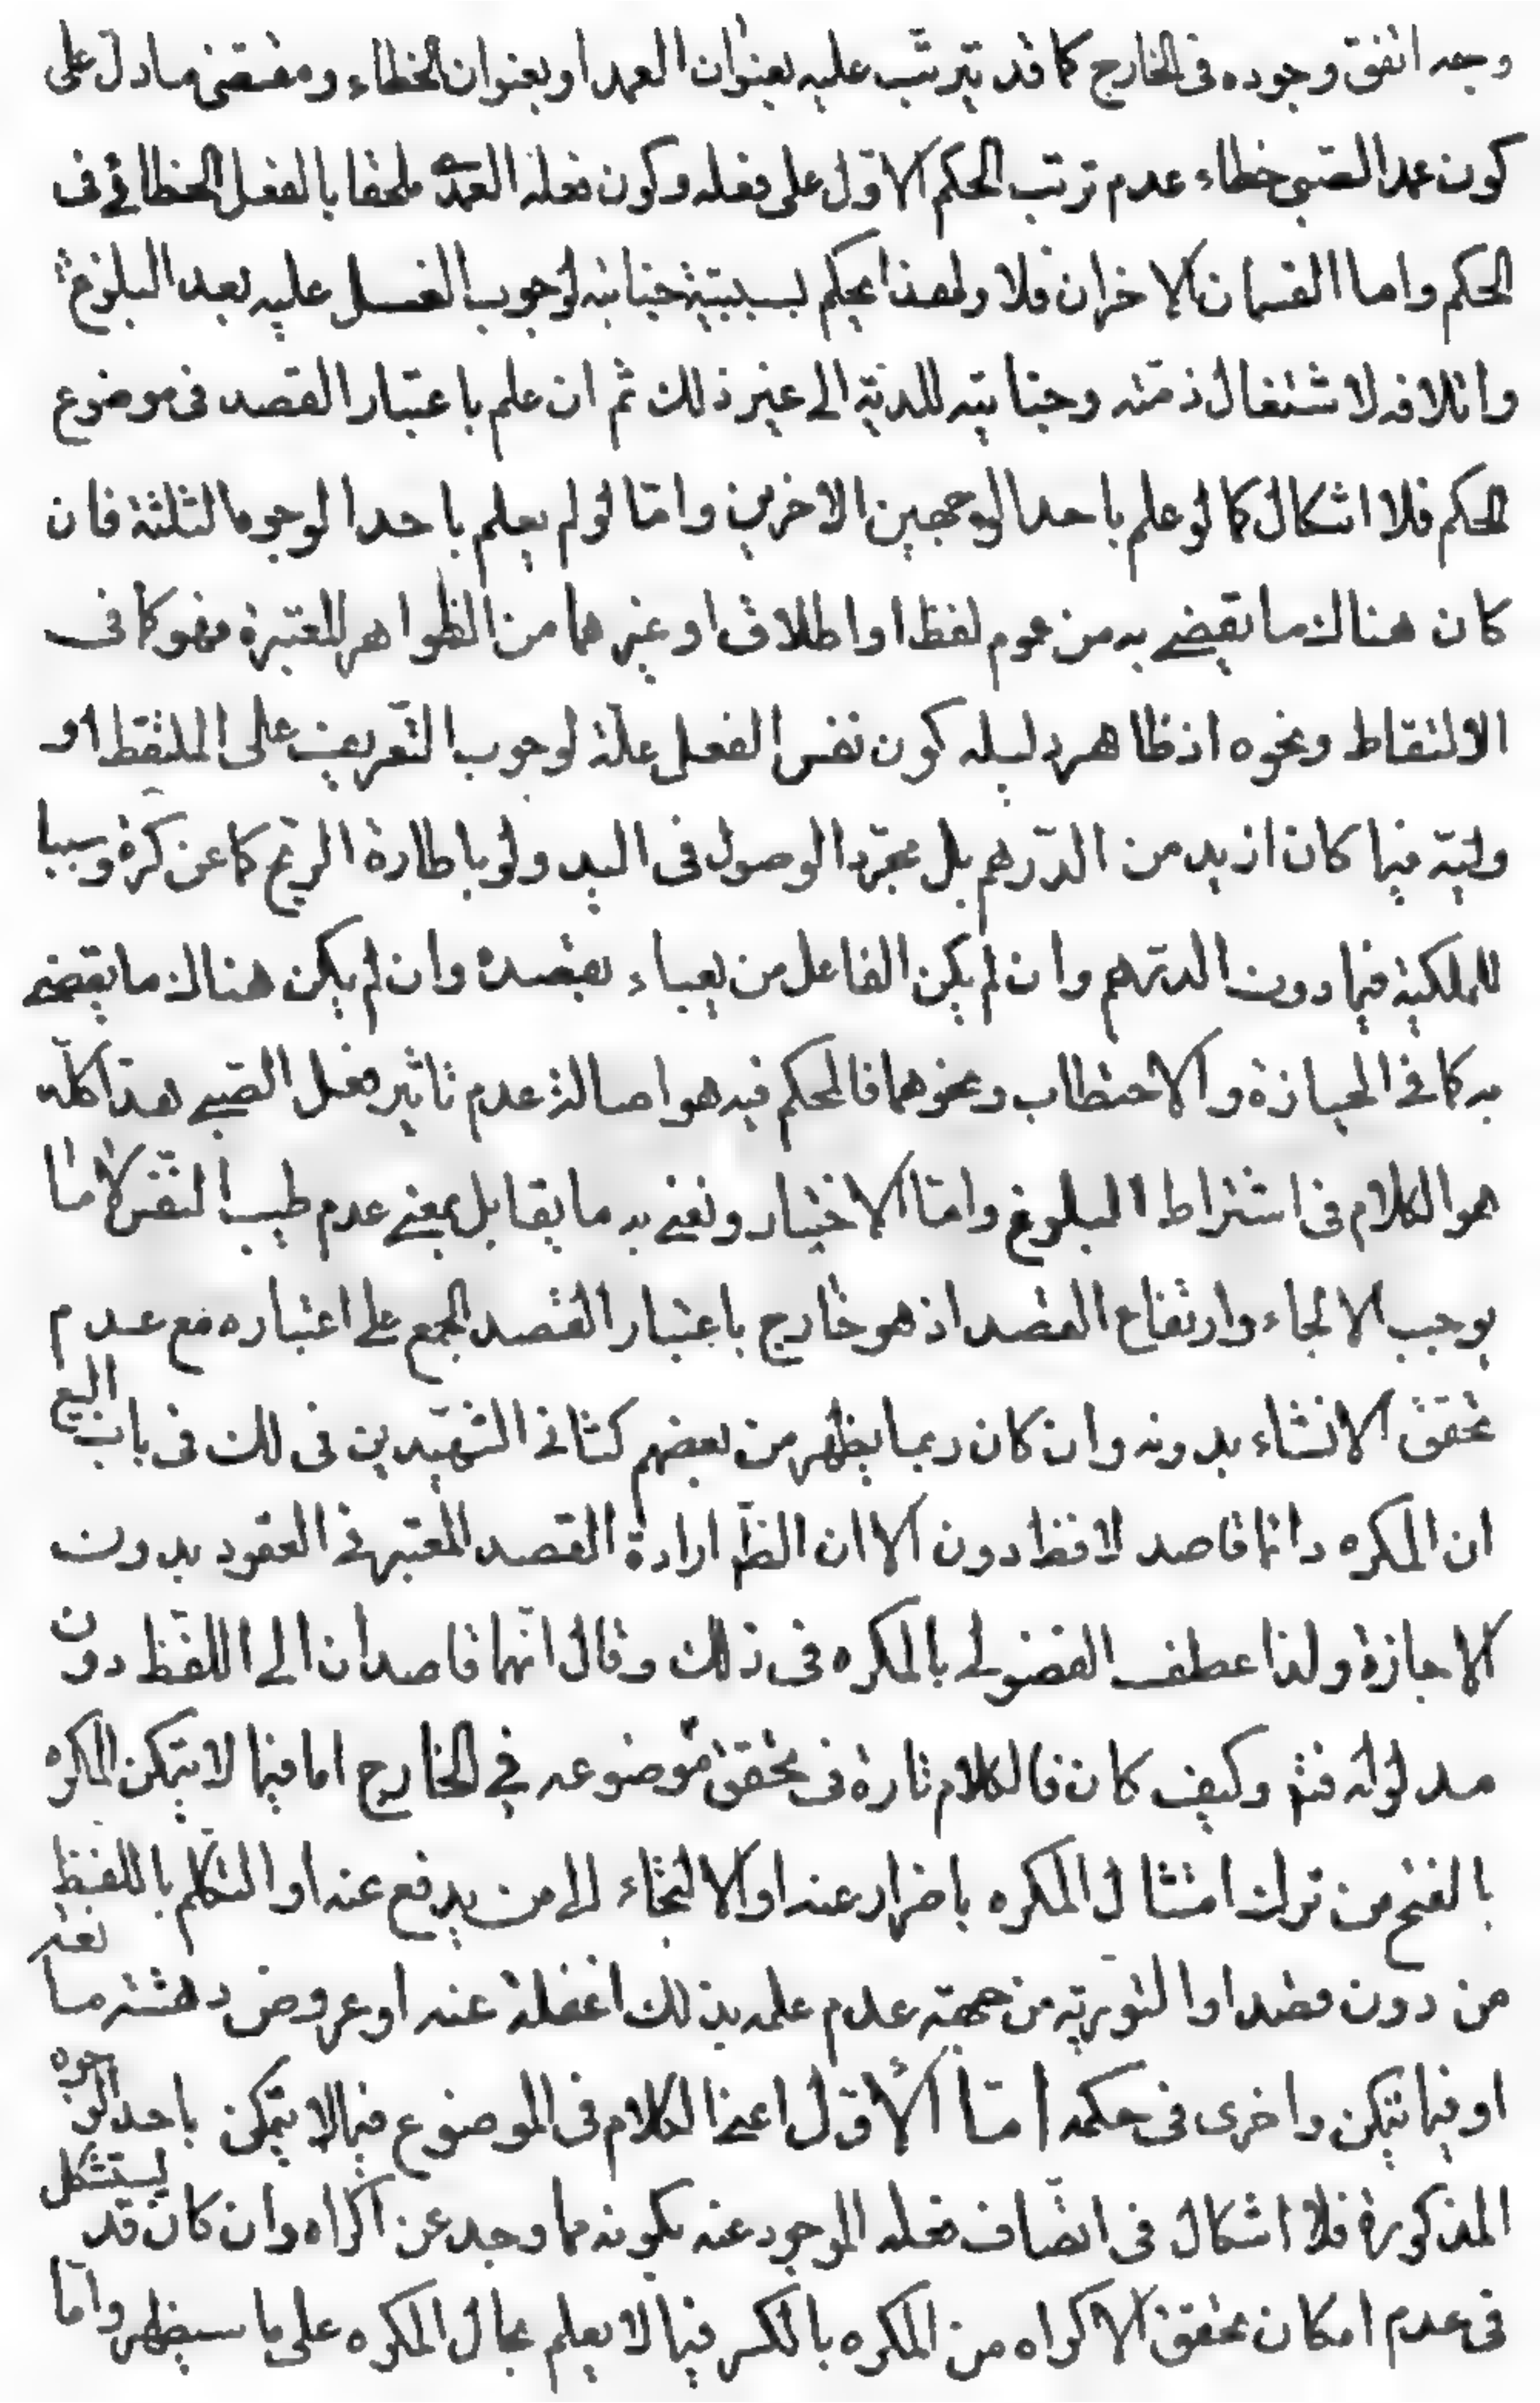 وجه اتفق وجوده فى الخارج كما قد يترتب عليه بعنوان العمد او بعنوان الخطاء ومقتضى ما دل على
كون عمد الصبى خطاء عدم ترتب الحكم الاول على فعله وكون فعله العمدى ملحقا بالفعل الخطائى فى
الحكم واما القسمان الاخران فلا ولهذا يحكم بسببية جنابته لوجوب الغسل عليه بعد البلوغ
واتلافه لاشتغال ذمته وجنايته للدية الى غير ذلك ثم ان علم باعتبار القصد فى موضوع
الحكم فلا اشكال كما لو علم باحد الوجهين الاخرين واما لو لم يعلم باحد الوجوه الثلثة فان
كان هناك ما يقضى به من عموم لفظ او اطلاق او غيرهما من الظواهر المعتبرة فهو كما فى
الالتقاط ونحوه اذ ظاهر دليله كون نفس الفعل علة لوجوب التعريف على الملتقط او
وليه فيما كان ازيد من الدرهم بل مجرد الوصول فى اليد ولو باطارة الريح كما عن كره وسببا
للملكية فيما دون الدرهم وان لم يكن الفاعل من يعباء بقصده وان لم يكن هناك ما يقضى
به كما فى الحيازة والاحتطاب ونحوهما فالحكم فيه هو اصالة عدم تاثير فعل الصبى هذا كله
هو الكلام فى اشتراط البلوغ واما الاختيار ونعنى به ما يقابل بمعنى عدم طيب النفس لا ما
يوجب الالجاء وارتفاع القصد اذ هو خارج باعتبار القصد المجمع على اعتباره مع عدم
تحقق الانشاء بدونه وان كان ربما يظهر من بعضهم كثانى الشهيدين فى لك فى باب البيع
ان المكره دائما قاصد لافظ دون الا ان الظ ارادة القصد المعتبر فى العقود بدون
الاجازة ولذا عطف الفضولى بالمكره فى ذلك وقال انهما قاصدان الى اللفظ دون
مدلوله فتم وكيف كان فالكلام تارة فى تحقق موضوعه فى الخارج اما فيما لا يتمكن المكره
بالفتح من ترك امتثال المكره باضرار عنه او الالتجاء الى من يدفع عنه او التكلم باللفظ
من دون قصد او التورية من جهة عدم علمه بذلك اغفلة عنه او عروض دهشة ما نعة
او فيما يتمكن واخرى فى حكمه اما الاول اعنى الكلام فى الموضوع فيما لا يتمكن باحد الوجوه
المذكورة فلا اشكال فى اتصاف فعله الموجود عنه بكونه مما وجد عن اكراه وان كان قد يستشكل
فى عدم امكان تحقق الاكراه من المكره بالكسر فيما لا يعلم بحال المكره على ما سيظهر واما